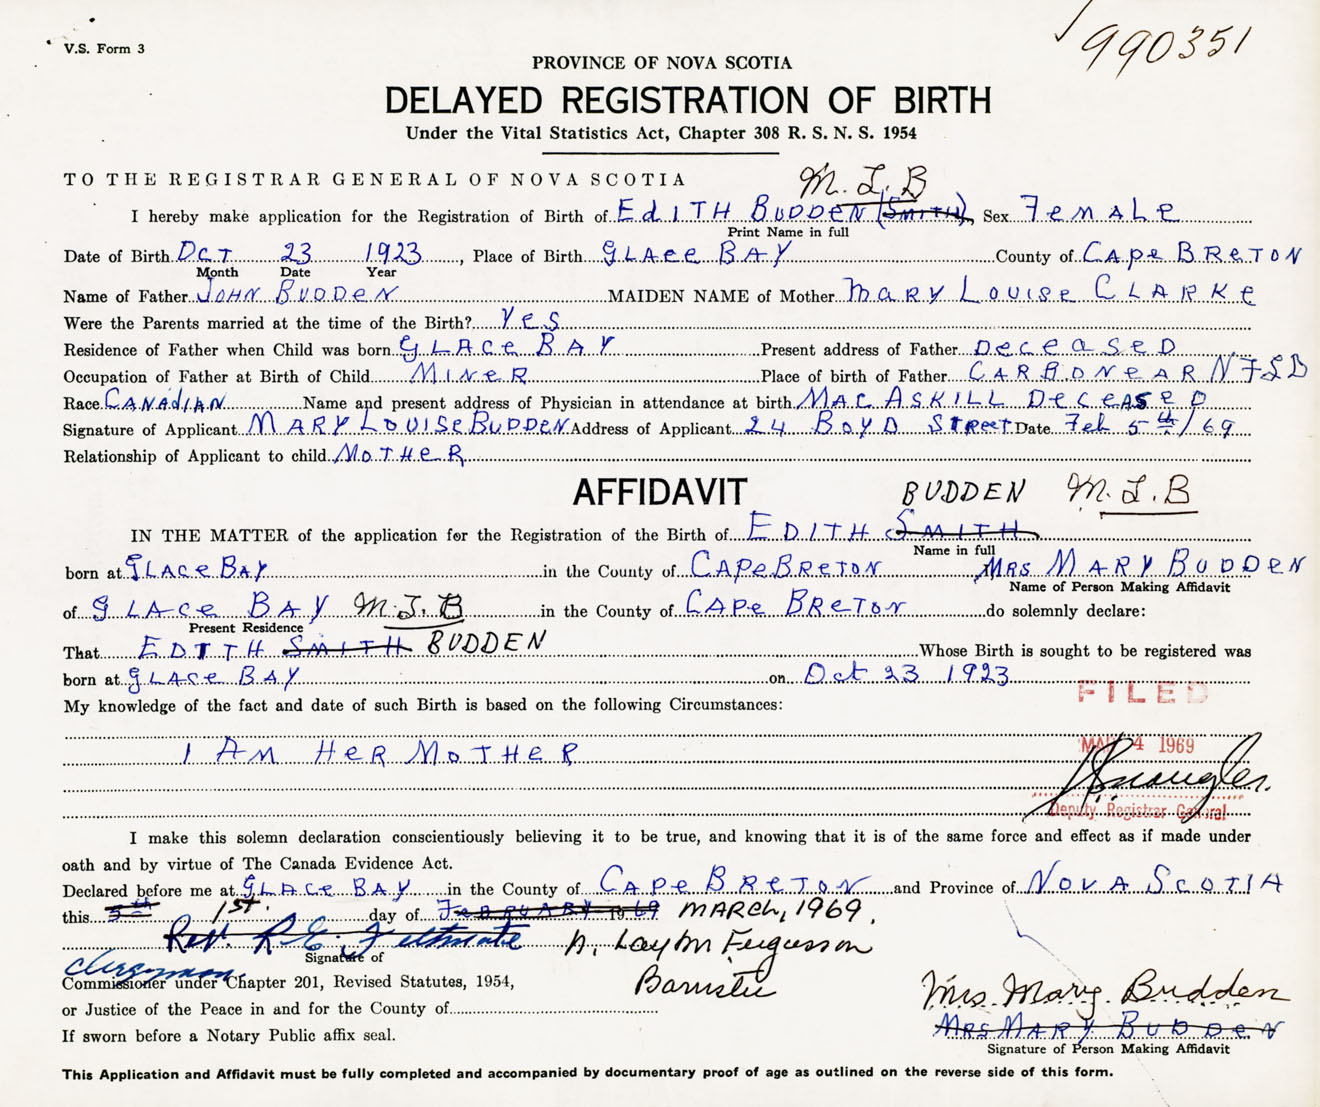 V.S. Form 3
990351
PROVINCE OF NOVA SCOTIA
DELAYED REGISTRATION OF BIRTH
Under the Vital Statistics Act, Chapter 308 R. S. N. S. 1954
TO THE REGISTRAR GENERAL OF NOVA SCOTIA
M. L. B
I hereby make application for the Registration of Birth of EdITH BUDDEN (SMITH), Sex FemaLe
Print Name in full
Date of Birth OCT 23 1923, Place of Birth GLAce BAY County of CApe BReTON
Month Date Year
Name of Father JOHN BUDDEN MAIDEN NAME of Mother MARY LOUISe CLARKe
Were the Parents married at the time of the Birth? YeS
Residence of Father when Child was born GLAce BAY Present address of Father DeceaSeD
Occupation of Father at Birth of Child MINeR Place of birth of Father CARBONeAR NFLD
Race CANAdIAN Name and present address of Physician in attendance at birth MAC ASKILL DeceASeD
Signature of Applicant MARY LOUISe BUDDEN Address of Applicant 24 BOYD STReeT Date Feb 5th/69
Relationship of Applicant to child MOTHeR
AFFIDAVIT BUDDEN M. L. B
IN THE MATTER of the application for the Registration of the Birth of EDITH SMITH
Name in full
born at GLAce BAY in the County of CAPe BReTON MRS MARY BUDDeN
Name of Person Making Affidavit
of GLAce BAY M. L. B in the County of CAPe BReTON do solemnly declare:
Present Residence
That EDITH SMITH BUDDEN Whose Birth is sought to be registered was
born at GLAce BAY on Oct 23 1923
FILED
My knowledge of the fact and date of such Birth is based on the following Circumstances:
4 1969
I AM HeR MOTHeR
Deputy Registrar General
I make this solemn declaration conscientiously believing it to be true, and knowing that it is of the same force and effect as if made under
oath and by virtue of The Canada Evidence Act.
Declared before me at GLAce BAY in the County of CAPe BReTON and Province of NOVA SCOTIA
this 5th 1st. day of FeBRUARY 1969 MARCH, 1969.
Rev. R. E. N. Layton Fergusson
Signature of
clergyman Barrister
Commissioner under Chapter 201, Revised Statutes, 1954,
Mrs. Mary Budden
or Justice of the Peace in and for the County of
MRS MARY BUDDeN
If sworn before a Notary Public affix seal.
Signature of Person Making Affidavit
This Application and Affidavit must be fully completed and accompanied by documentary proof of age as outlined on the reverse side of this form.